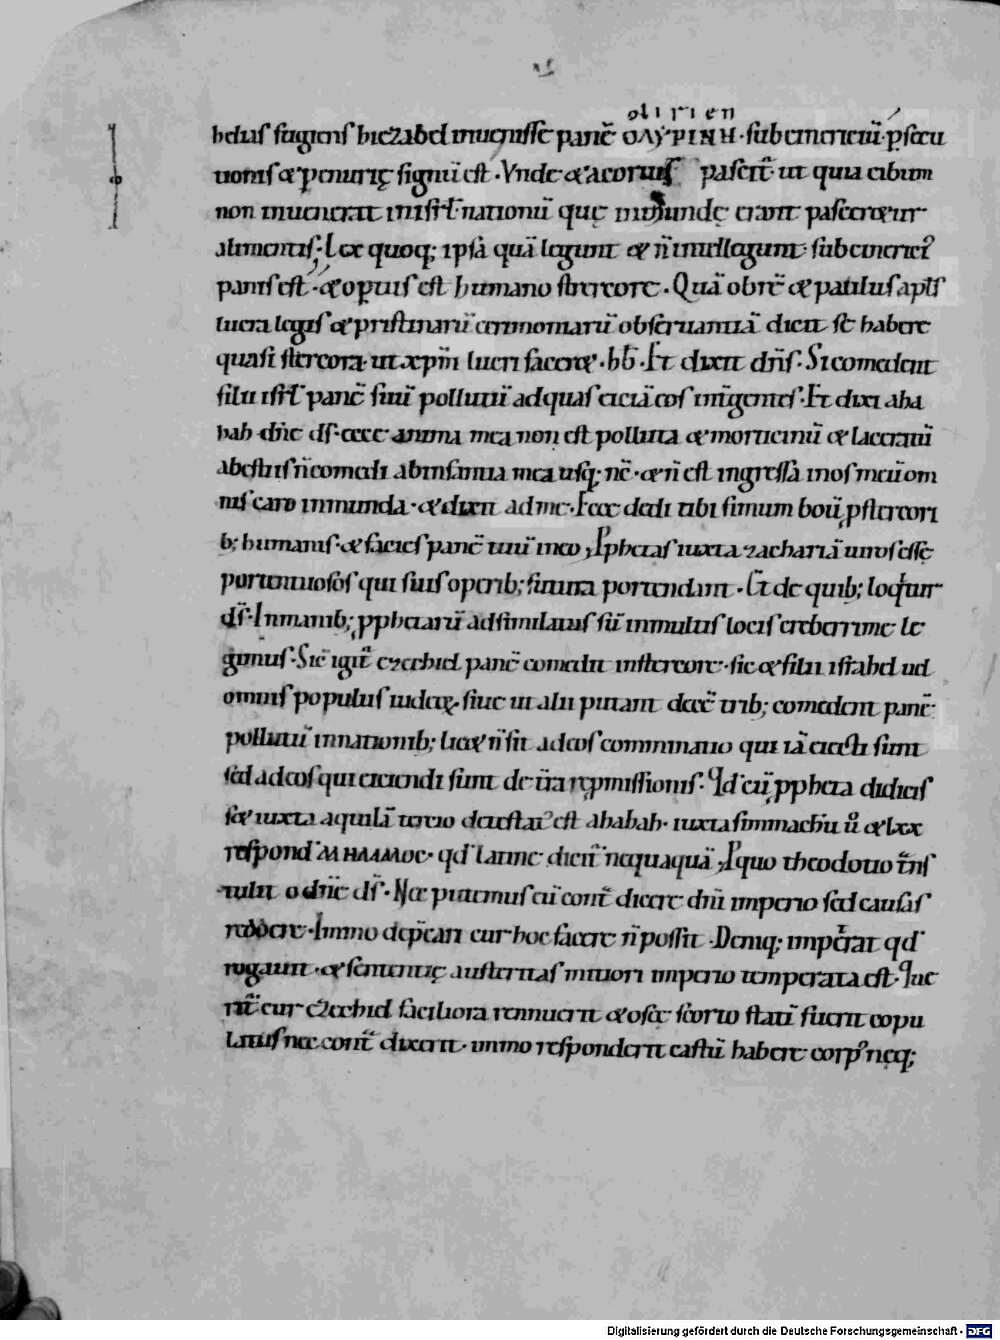 olirien
helias fugiens hiezabel inuenisse panē ΟΛΥΡΙΝΗ · subcinericiū · p̱secu
tionis & penurię signū est · Vnde & a coruis pascit̄ · ut quia cibum
non inuenerat in isrl̄ nationū quę inmundę erant pasceretur
alimentis; Lex quoq; ipsa quā legunt & ñ intellegunt · subcinerici᾽
panis est · & optus est humano stercore · Quā obrē & paulus apl̄s
lucra legis & pristinarū cerimoniarū obseruantiā dicit sē habere
quasi stercora · ut xp̄m lucri faceret · hb̄ · Et dixit dn̄s · Si comedent
filii isrl̄ panē suū pollutū ad quas eiciā eos in gentes · Et dixi aha
hah · dn̄e ds̄ · ecce anima mea non est polluta & morticinū & laceratū
a bestiis ñ comedi ab infantia mea usq; nc̄ · & ñ est ingressa in os meū om
nis caro inmunda · & dixit ad me · Ecce dedi tibi fimum boū p̱ stercori
b; humanis · & facies panē tuū in eo; Pphetas iuxta zachariā uiros esse
portentuosos qui suis operib; futura portendant · Et de quib; loqtur
ds̄ · In manib; pphetarū adsimilatus sū in multis locis creberrime le
gimus · Sic igit̄ ezechiel panē comedit in stercore · sic & filii israhel uel
omnis populus iudeę · siue ut alii putant decē trib; comedent panē
pollutū in nationib; licet ñ sit ad eos comminatio qui iā eiecti sunt
sed ad eos qui eiciendi sunt de t̄ra repromissionis · Qd̄ cū ppheta didicis
set iuxta aquilā tercio detestat᾽ est ahahah · iuxta simmachū ū & lxx
respond ΜΗΔΑΜΟC · qd̄ latine dicit̄ nequaquā; P quo theodotio t̄ns
tulit o dn̄e ds̄ · Nec putemus eū cont̄ dicere dn̄i imperio sed causas
reddere · Immo dep̄cari cur hoc facere ñ possit · Deniq; impetrat qd̄
rogauit · & sententię austeritas mitiori imperio temperata est · Quę
rit̄ cur ezechiel faciliora rennuerit & oseę scorto statī fuerit copu
latus nec cont̄ dixerit · immo responderit castū habere corp᾽ neq;
Digitalisierung gefördert durch die Deutsche Forschungsgemeinschaft - DFG